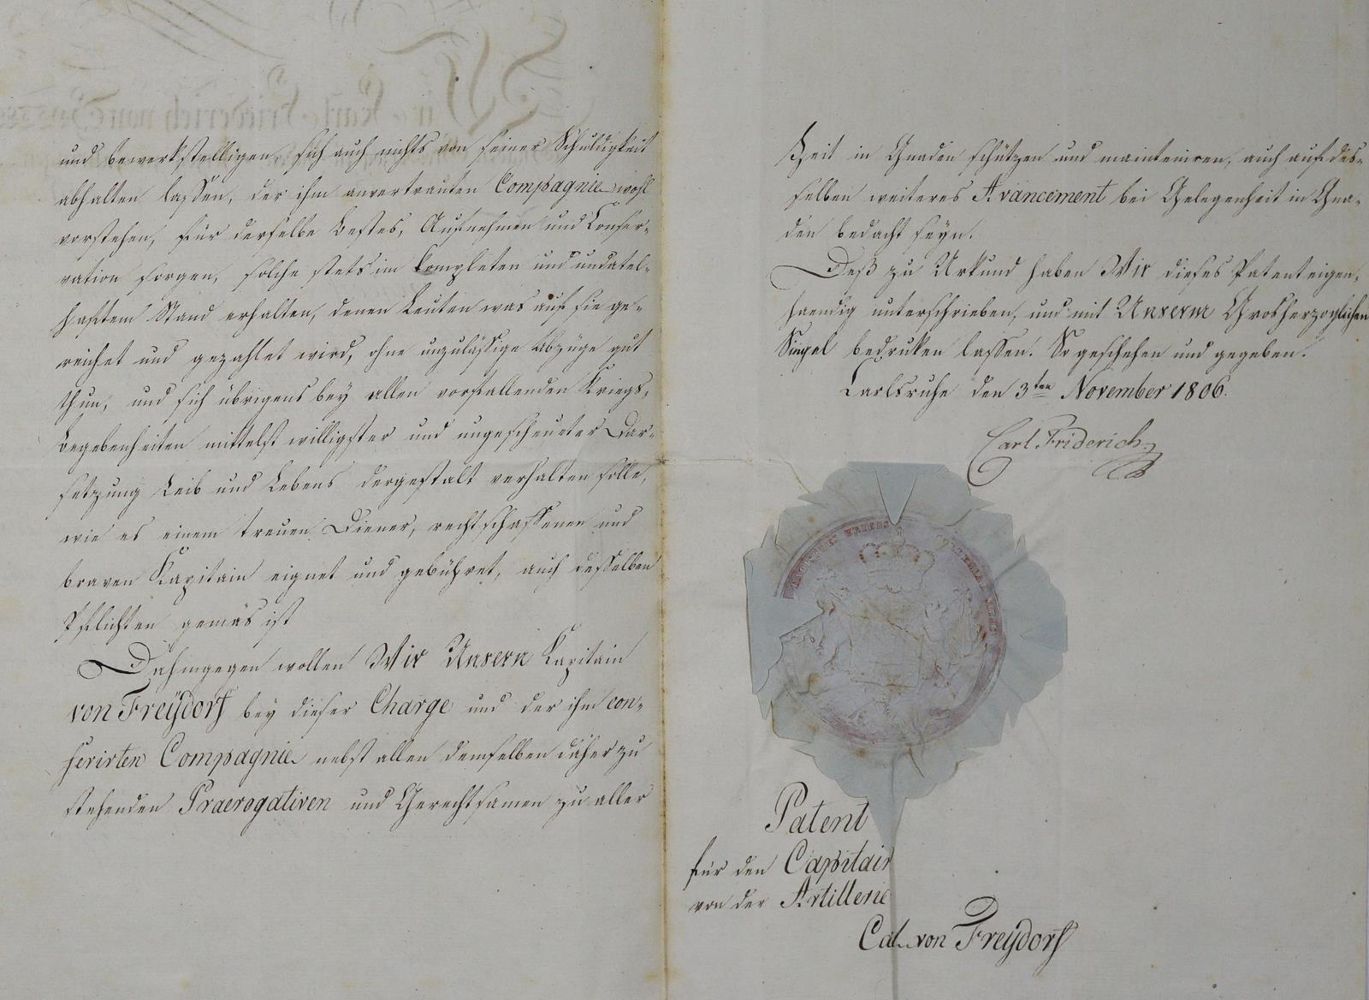 und bewerkstelligen, sich auch nichts von seiner Schuldigkeit
abhalten lassen, der ihm anvertrauten Compagnie wohl
vorstehen, für derselbe bestes, Aufnehmen und Conser-
vation sorgen, solche stets im kompleten und untadel-
haftem Stand erhalten, denen Leuten was auf sie ge-
reichet und gezahlet wird, ohne unzulässige Abzüge gut
thun, und sich übrigens bey allen vorfallenden Kriegs-
begebenheiten mittelst willigster und ungescheueter Dar-
setzung Leib und Lebens dergestalt verhalten solle,
wie es einem treuen Diener, rechtschaffenen und
braven Kapitain eignet und gebühret, auch desselben
Pflichten gemäs ist
Dahingegen wollen Wir Unsern Kapitain
von Freÿdorf bey dieser Charge und der ihm con-
ferirten Compagnie nebst allen demselben daher zu
stehenden Praerogativen und Gerechtsamen zu aller
Zeit in Gnaden schützen und mainteniren, auch auf des-
selben weiteres Avancement bei Gelegenheit in Gna-
den bedacht seyn.
Deß zu Urkund haben Wir dieses Patent eigen-
haendig unterschrieben, und mit Unserm Grosherzoglichen
Siegel bedruken lassen. So geschehen und gegeben.
Carlsruhe den 3ten November 1806.
Carl Friderich
Patent
für den Capitain
von der Artillerie
Carl von Freÿdorf